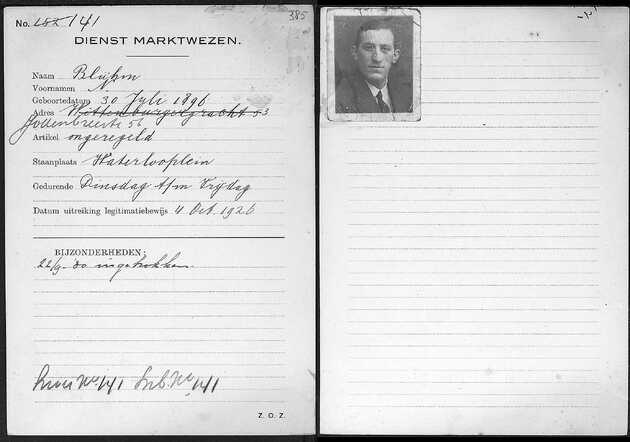 No. 182 141
385
DIENST MARKTWEZEN.
Naam Blujkm
Voornamen N
Geboortedatum 30 Juli 1896
Adres Wittenburgergracht 53
Jodenbreestr 56
Artikel ongeregeld
Staanplaats Waterlooplein
Gedurende Dinsdag t/m Vrijdag
Datum uitreiking legitimatiebewijs 4 Oct. 1926
BIJZONDERHEDEN:
22/9-30 ingetrokken.
No 141 No 141
Z. O. Z.